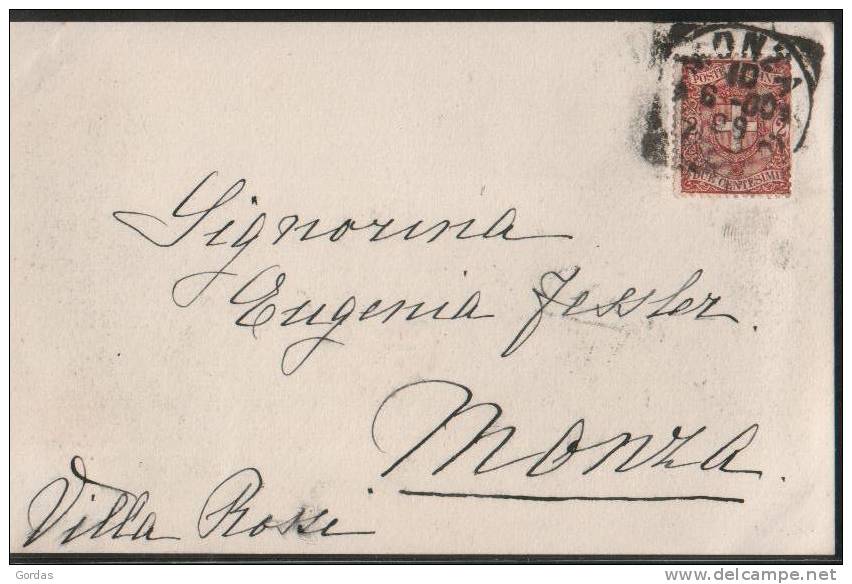 MONZA
POSTE
10
6 - 00
99
2 2
DUE CENTESIMI
Signorina
Eugenia Jessler.
Monza.
Villa Rossi.
Gordas
delcampe.net